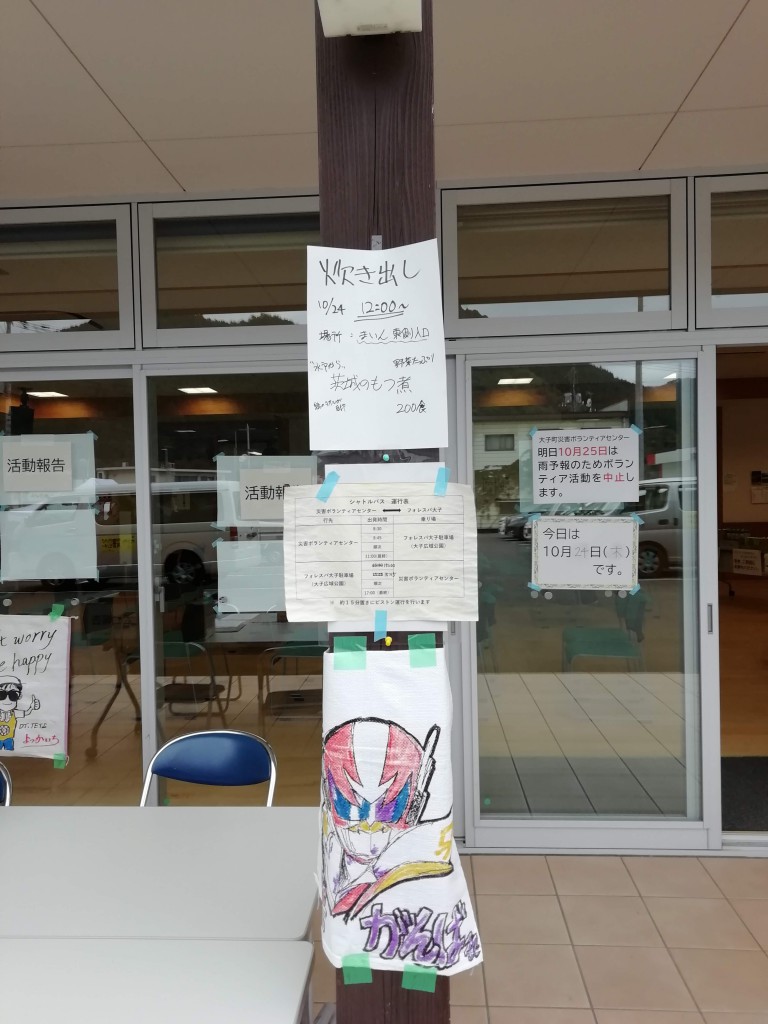 炊き出し
10/24 12:00〜
場所：まいん 東側入口
"水戸から、 野菜たっぷり
茨城のもつ煮
200食
シャトルバス 運行表
災害ボランティアセンター ⟷ フォレスパ大子
行先 出発時間 乗り場
災害ボランティアセンター
9:30
9:45
順次
11:00(最終)
フォレスパ大子駐車場
(大子広域公園)
フォレスパ大子駐車場
(大子広域公園)
順次
17:00(最終)
災害ボランティアセンター
※ 約15分置きにピストン運行を行います
がんば
活動報告
活動報
t worry
e happy
よっかいち
大子町災害ボランティアセンター
明日10月25日は
雨予報のためボラン
ティア活動を中止し
ます。
今日は
10月24日(木)
です。